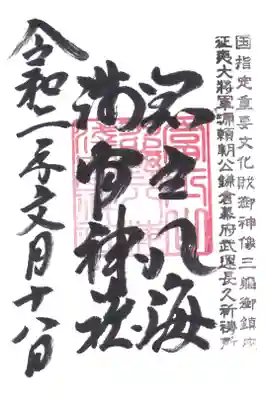 国指定重要文化財御神像三躯御鎮座
征夷大将軍源頼朝公鎌倉幕府武運長久祈祷所
冨士八海
神社
令和二子文月十八日